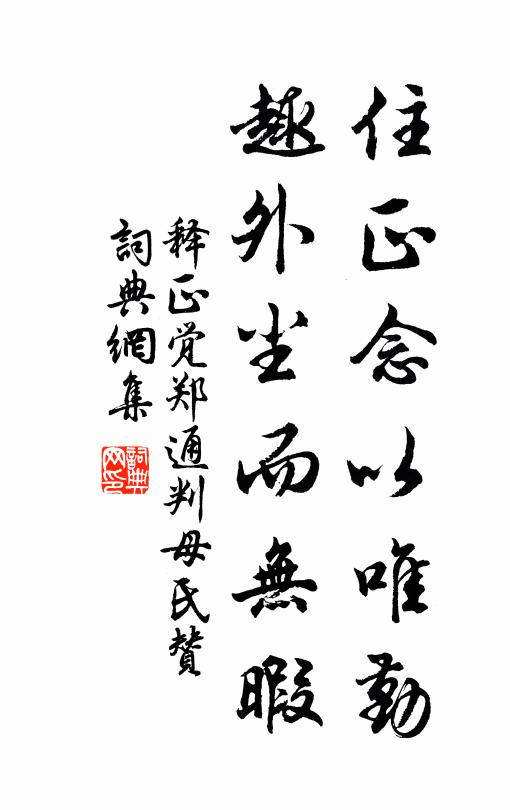 住正念以唯勤
趣外尘而無暇
释正觉郑通判母氏赞
詞典網集
詞典网印